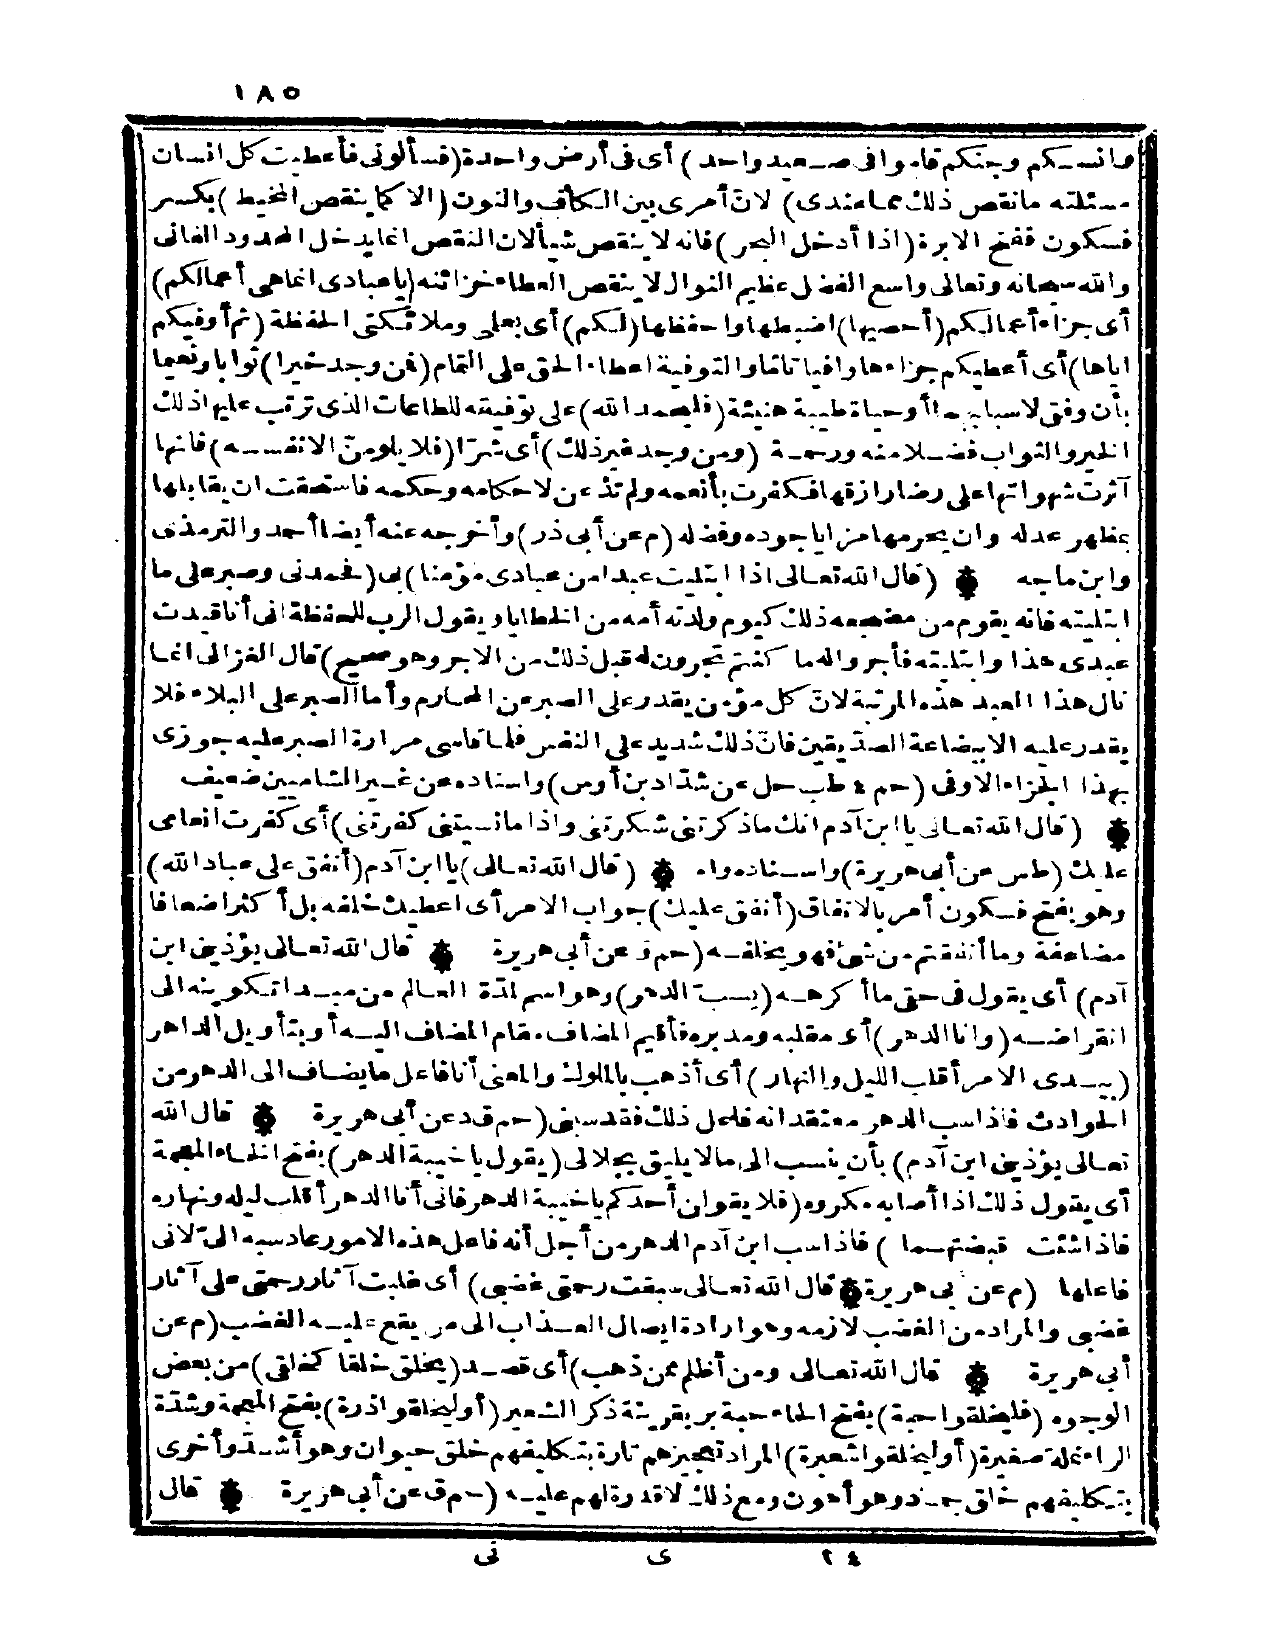 ١٨٥
وانسكم وجنكم قاموا فى صعيد واحد) أى فى أرض واحدة (فسألونى فأعطيت كل انسان
مسئلته مانقص ذلك مما عندى) لانّ أمرى بين الكاف والنون (الا كما ينقص المخيط) بكسر
فسكون ففتح الابرة (اذا أدخل البحر) فانه لا ينقص شيأ لان النقص انما يدخل المحدود الفانى
والله سبحانه وتعالى واسع الفضل عظيم النوال لا ينقص العطاء خزائنه (يا عبادى انما هى أعمالكم)
أى جزاء أعمالكم (أحصيها) اضبطها واحفظها (لكم) أى بعلمى وملائكتى الحفظة (ثم أوفيكم
اياها) أى أعطيكم جزاءها وافيا تامّا والتوفية اعطاء الحق على التمام (فمن وجد خيرا) ثوابا ونعيما
بأن وفق لاسبابهما أو حياة طيبة هنيئة (فليحمد الله) على توفيقه للطاعات الذى ترتب عليها ذلك
الخير والثواب فضلا منه ورحمة (ومن وجد غير ذلك) أى شرّا (فلا يلومنّ الا نفسه) فانها
آثرت شهواتها على رضا رازقها فكفرت بأنعمه ولم تذعن لاحكامه وحكمه فاستحقت ان يقابلها
بمظهر عدله وان يحرمها مزايا جوده وفضله (م عن أبى ذر) وأخرجه عنه أيضا أحمد والترمذى
وابن ماجه ۞ (قال الله تعالى اذا ابتليت عبدا من عبادى مؤمنا) بى (فحمدنى وصبر على ما
ابتليته فانه يقوم من مضجعه ذلك كيوم ولدته أمه من الخطايا ويقول الرب للحفظة انى أنا قيدت
عبدى هذا وابتليته فأجروا له ما كنتم تجرون له قبل ذلك من الاجر وهو صحيح) قال الغزالى انما
نال هذا العبد هذه المرتبة لانّ كل مؤمن يقدر على الصبر عن المحارم وأما الصبر على البلاء فلا
يقدر عليه الا ببضاعة الصدّيقين فانّ ذلك شديد على النفس فلما قاسى مرارة الصبر عليه جوزى
بهذا الجزاء الاوفى (حم ع طب حل عن شدّاد بن أوس) واسناده عن غير الشاميين ضعيف
۞ (قال الله تعالى يا ابن آدم انك ماذكرتنى شكرتنى واذا مانسيتنى كفرتنى) أى كفرت انعامى
عليك (طس عن أبى هريرة) واسناده واه ۞ (قال الله تعالى) يا ابن آدم (أنفق على عباد الله)
وهو بفتح فسكون أمر بالانفاق (أنفق عليك) جواب الامر أى اعطيك خلفه بل أكثر اضعافا
مضاعفة وما أنفقتم من شئ فهو يخلفه (حم ق عن أبى هريرة ۞ قال الله تعالى يؤذينى ابن
آدم) أى يقول فى حقى ما أكرهه (يسبّ الدهر) وهو اسم لمدّة العالم من مبدا تكوينه الى
انقراضه (وانا الدهر) أى مقلبه ومدبره فأقيم المضاف مقام المضاف اليه أو بتأويل الداهر
(بيدى الامر أقلب الليل والنهار) أى أذهب بالملوك والمعنى أنا فاعل ما يضاف الى الدهر من
الحوادث فاذا سب الدهر معتقدا انه فاعل ذلك فقد سبنى (حم ق د عن أبى هريرة ۞ قال الله
تعالى يؤذينى ابن آدم) بأن ينسب الى ما لا يليق بجلالى (يقول يا خيبة الدهر) بفتح الخاء المعجمة
أى يقول ذلك اذا أصابه مكروه (فلا يقولن أحدكم يا خيبة الدهر فانى أنا الدهر أقلب ليله ونهاره
فاذا شئت قبضتهما) فاذا سب ابن آدم الدهر من أجل أنه فاعل هذه الامور عاد سبه الىّ لانى
فاعلها (م عن أبى هريرة ۞ قال الله تعالى سبقت رحمتى غضبى) أى غلبت آثار رحمتى على آثار
غضبى والمراد من الغضب لازمه وهو ارادة ايصال العذاب الى من يقع عليه الغضب (م عن
أبى هريرة ۞ قال الله تعالى ومن أظلم ممن ذهب) أى قصد (يخلق خلقا كخلقى) من بعض
الوجوه (فليخلقوا حبة) بفتح الحاء حبة بر بقرينة ذكر الشعير (أو ليخلقوا ذرة) بفتح المعجمة وشدّة
الراء نملة صغيرة (أو ليخلقوا شعيرة) المراد تعجيزهم تارة بتكليفهم خلق حيوان وهو أشدّ وأخرى
بتكليفهم خلق جماد وهو أهون ومع ذلك لا قدرة لهم عليه (حم ق عن أبى هريرة ۞ قال
٢٤ ى نى